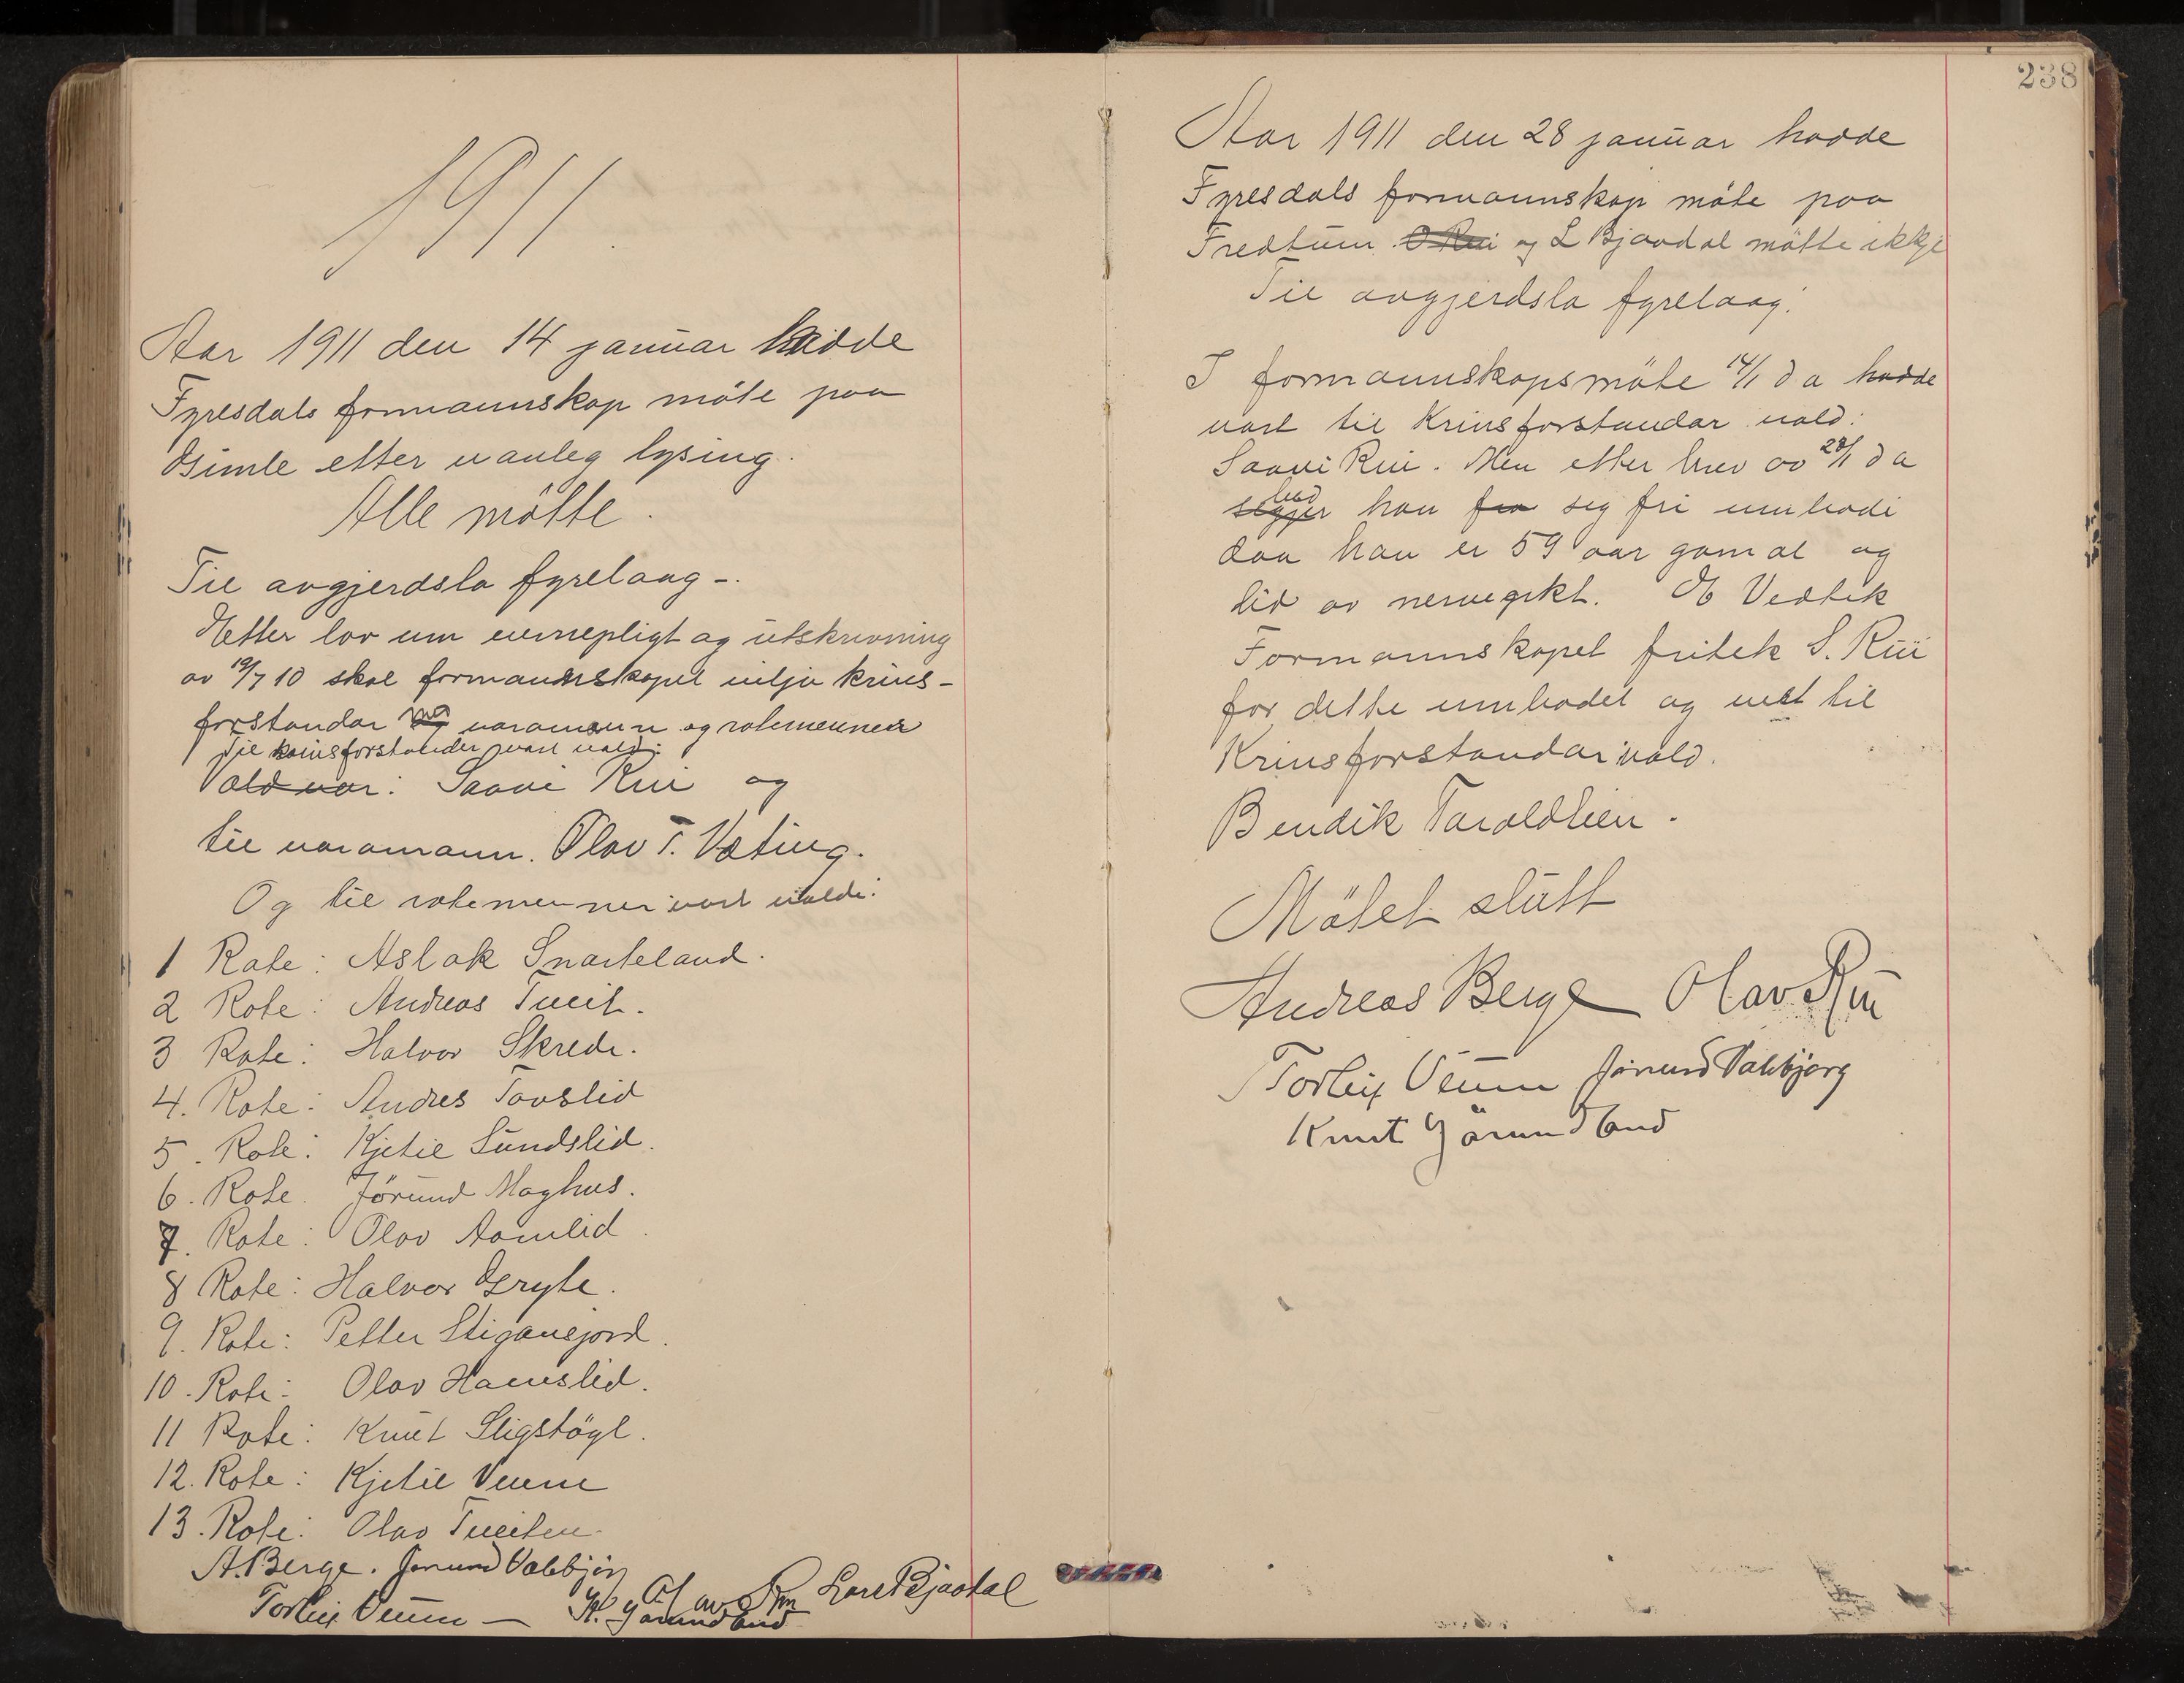 1911.
Aar 1911 den 14 januar hadde
Fyresdals formannskap möte paa
Gimle etter vanleg lysing.
Alle mötte.
Til avgjerdsla fyrelaag -.
Etter lov um vernepligt og utskrivning
av 19/7 10 skal formannskapet velja krins-
forstandar og varamann og rotemenner
Til krinsforstander vart vald:
Vald var: Saavi Rui og
til varamann. Olav T. Væting.
Og til rotemenner vart valde:
1 Rote: Aslak Snarteland.
2 Rote: Andreas Tveit.
3 Rote: Halvor Skrede.
4. Rote: Andres Tovslid
5. Rote: Kjetil Sundslid.
6. Rote. Jörund Moghus.
7. Rote: Olav Aamlid.
8 Rote: Halvor Gryte.
9. Rote: Petter Stiganejord.
10. Rote: Olav Hauslid.
11 Rote: Knut Stigstögl.
12. Rote: Kjetil Veum
13. Rote: Olav Tveiten.
A. Berge. Jørund Valebjørg
Torleif Veum — Olav Rui Lars Bjaadal
K. Gjørundland
238
Aar 1911 den 28 januar hadde
Fyresdals formannskap möte paa
Fredtun. O Rui og L Bjaadal mötte ikkje
Til avgjerdsla fyrelaag:
I formannskapsmöte 14/1 d a hadde
vart til Krinsforstandar vald:
Saavi Rui. Men etter brev av 28/1 d a
bad
segjer han fra seg fri umbodi
daa han er 59 aar gamal og
lid av nervegikt. Vedtek
Formannskapet fritek S. Rui
for dette umbodet og vert til
Krinsforstandar vald.
Bendik Taraldlien.
Mötet slutt
Andreas Berge Olav Rui
Torleif Veum Jørund Valebjørg
Knut Gjørundland